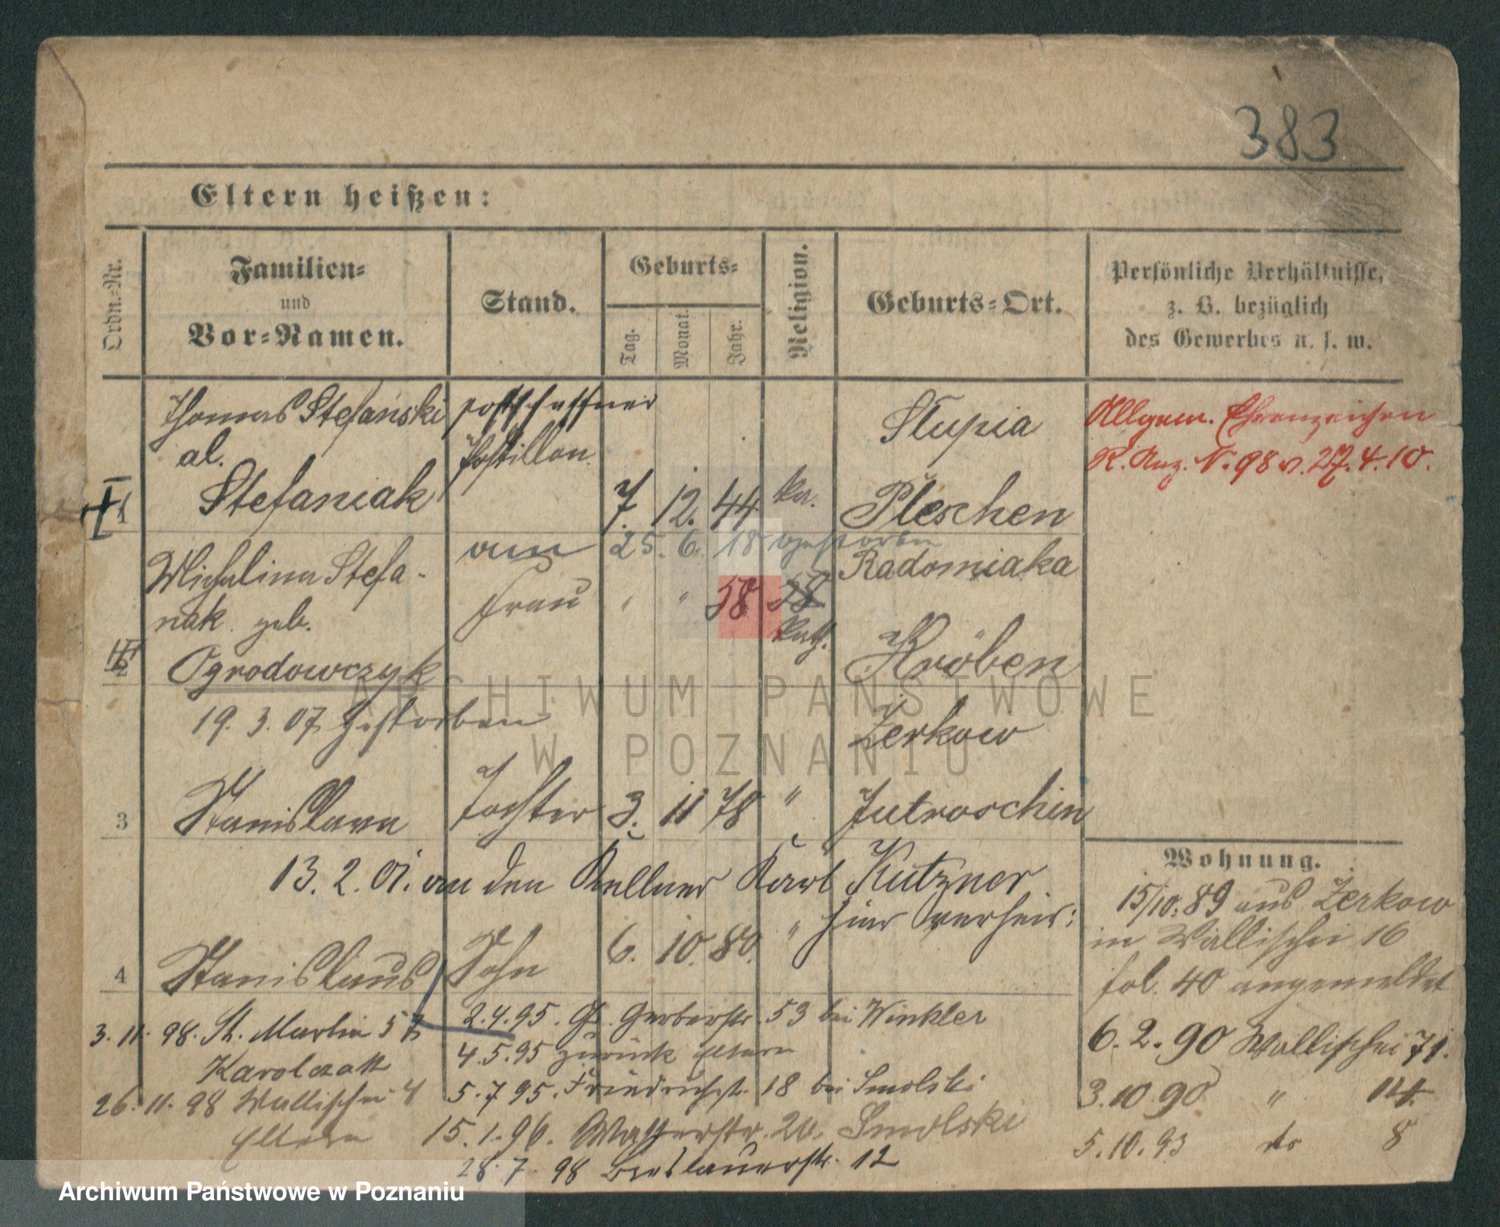 383
Eltern heißen:
Ordn.-Nr.
Familien-
und
Vor-Namen.
Stand.
Geburts-
Tag.
Monat.
Jahr.
Religion.
Geburts-Ort.
Persönliche Verhältnisse,
z. B. bezüglich
des Gewerbes u. s. w.
Thomas Stefański postschaffner Stupia
al. Postillon
1 Stefaniak 7. 12. 44 ka. Pleschen
Allgem. Ehrenzeichen
R. Anz. N. 98 v. 27.4.10.
am 25. 6. 18 gestorben
Michalina Stefa- Frau " " 58 58 Radomiaka
nak geb. kath.
2 Ogrodowczyk Kröben
19. 3. 07 gestorben Zerkow
3 Stanislawa Tochter 3. 11 78 " Jutroschin
13. 2. 01. an den Kellner Karl Kutzner
hier verheir:
4 Stanislaus Sohn 6. 10. 80. "
Wohnung.
15/10. 89 aus Zerkow
in Wallischei 16
fol. 40 angemeldet
6. 2. 90 Wallischei 71.
3. 10 90 " 14
5. 10. 93 do 8
3. 11. 98. St. Martin 57
Karolczak
26. 11. 98 Wallischei 4
Eltern
2.4.95. Gr. Gerberstr. 53 bei Winkler
4.5.95 zurück Eltern
5.7.95. Friedrichstr. 18 bei Smolski
15. 1. 96. 20. Smolski
28. 7. 98 Breslauerstr. 12
ARCHIWUM PAŃSTWOWE
W POZNANIU
Archiwum Państwowe w Poznaniu